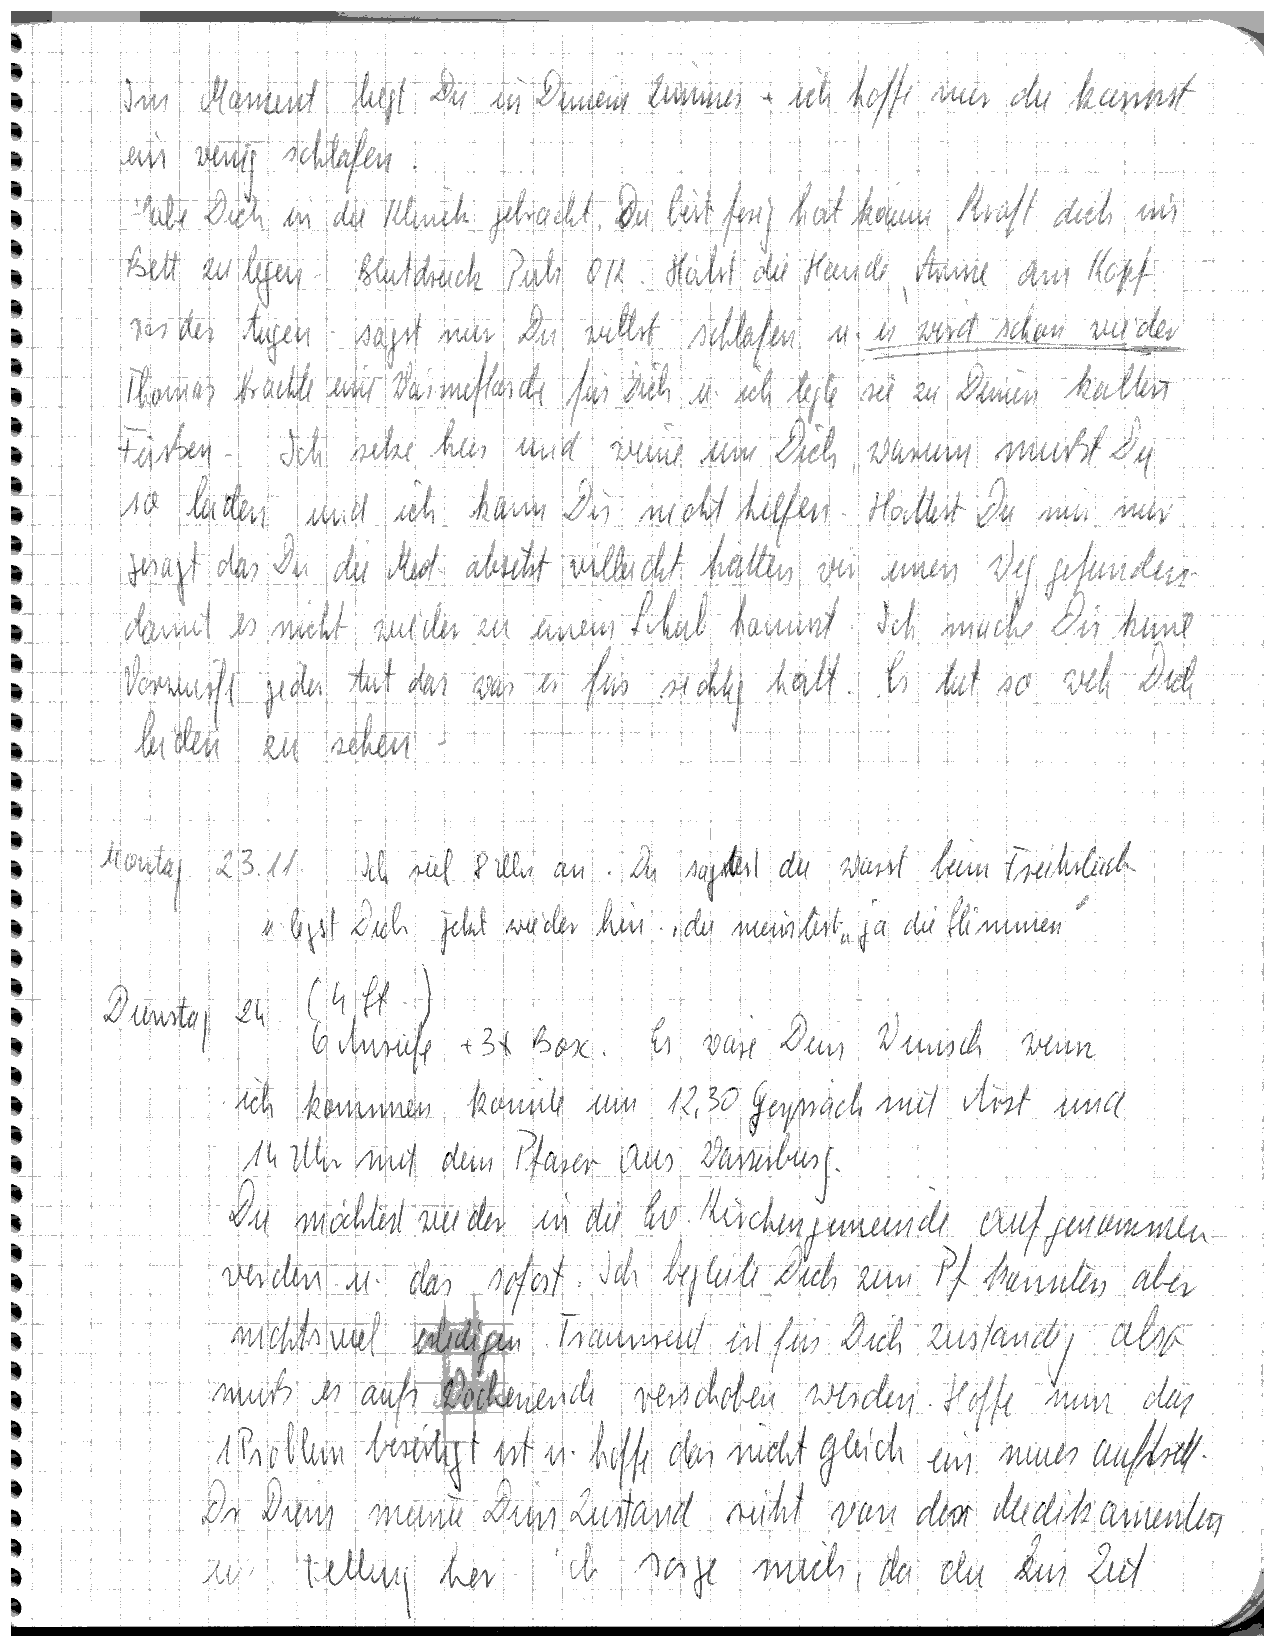 Im Moment liegt Du in Deinem Zimmer + ich hoffe nur du kannst
ein wenig schlafen.
Habe Dich in die Klinik gebracht. Du bist fertig hat kaum Kraft dich ins
Bett zu legen. Blutdruck Puls 012. Hälst die Hände, Arme am Kopf
vor den Augen sagst nur Du willst schlafen u. es wird schon wieder
Thomas brachte eine Wärmeflasche für Dich u. ich legte sie zu Deinen kalten
Füssen. Ich sitze hier und weine um Dich, warum musst Du
so leiden und ich kann Dir nicht helfen. Hattest Du mir nur
gesagt das Du die Med. absetzt villeicht hätten wir einen Weg gefunden
damit es nicht wieder zu einem Schub kommt. Ich mache Dir keine
Vorwürfe jeder tut das was er für richtig hält. Es tut so weh Dich
leiden zu sehen
Montag 23.11. Ich rief 8 Uhr an. Du sagtest du warst beim Frühstück
u. legst Dich jetzt wieder hin, du meintest „ja die Stimmen"
Dienstag 24 (4
6 Anrufe +3x Box. Es wäre Dein Wunsch wenn
ich kommen könnte um 12,30 Gespräch mit Arzt und
14 Uhr mit dem Pfarer aus Wasserburg.
Du möchtest wieder in die Ev. Kirchengemeinde aufgenommen
werden u. das sofort. Ich begleite Dich zum Pf konnten aber
nichts viel erledigen Traunreut ist für Dich zuständig also
muss es aufs Wochenende verschoben werden. Hoffe nur das
1 Problem beseitigt ist u. hoffe das nicht gleich ein neues auftrett.
Dr meinte Dein Zustand rührt von den Medikamenten
her ich sorge mich, da du zur Zeit